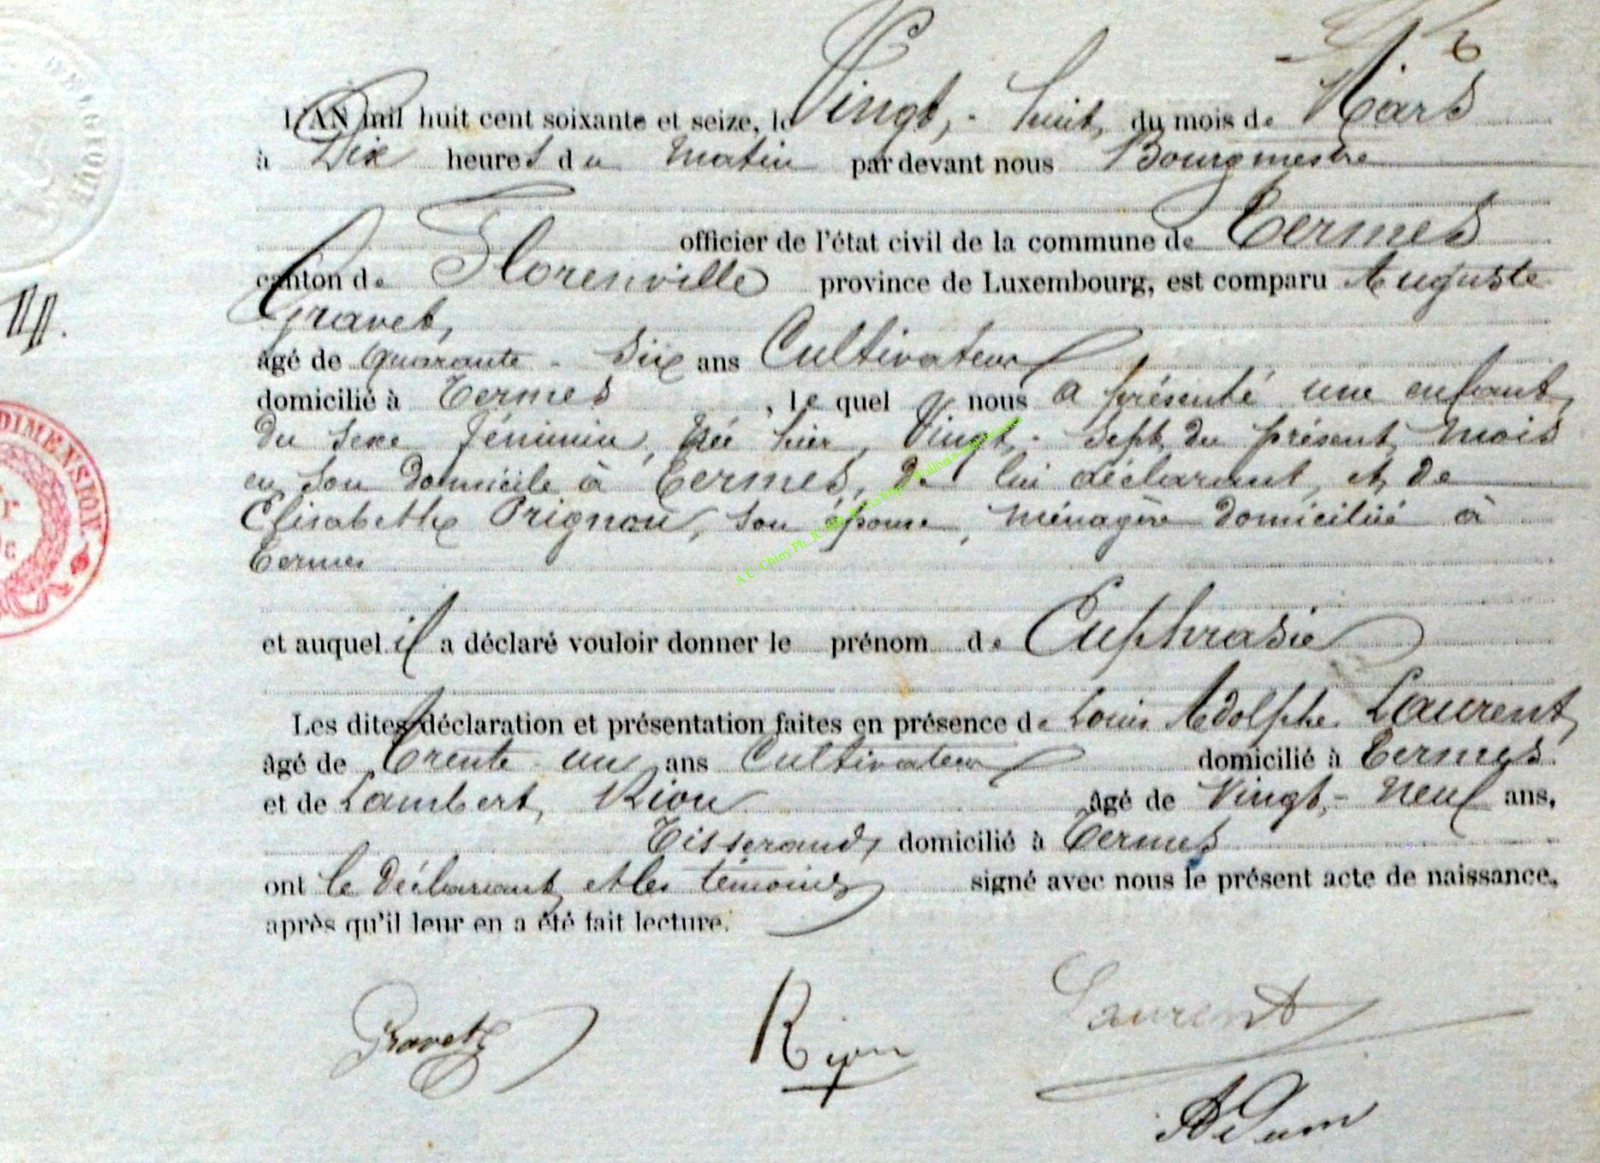 N° 6
L'AN mil huit cent soixante et seize, le Vingt-huit du mois de Mars
à Dix heures du matin par devant nous Bourgmestre
officier de l'état civil de la commune de Termes
canton de Florenville province de Luxembourg, est comparu Auguste
Gravet,
âgé de quarante-six ans Cultivateur
domicilié à Termes, le quel nous a présenté une enfant,
du sexe féminin, née hier, Vingt-sept du présent mois
en son domicile à Termes, de lui déclarant, et de
Elisabethe Prignon, son épouse, ménagère domiciliée à
Termes
et auquel il a déclaré vouloir donner le prénom de Euphrasie
Les dites déclaration et présentation faites en présence de Louis Adolphe Laurent,
âgé de trente-un ans Cultivateur domicilié à Termes.
et de Lambert Rion âgé de Vingt-neuf ans,
Tisserand, domicilié à Termes
ont le déclarant et les témoins signé avec nous le présent acte de naissance,
après qu'il leur en a été fait lecture.
Gravet Rion Laurent
Adam
BELGIQUE
DIMENSION